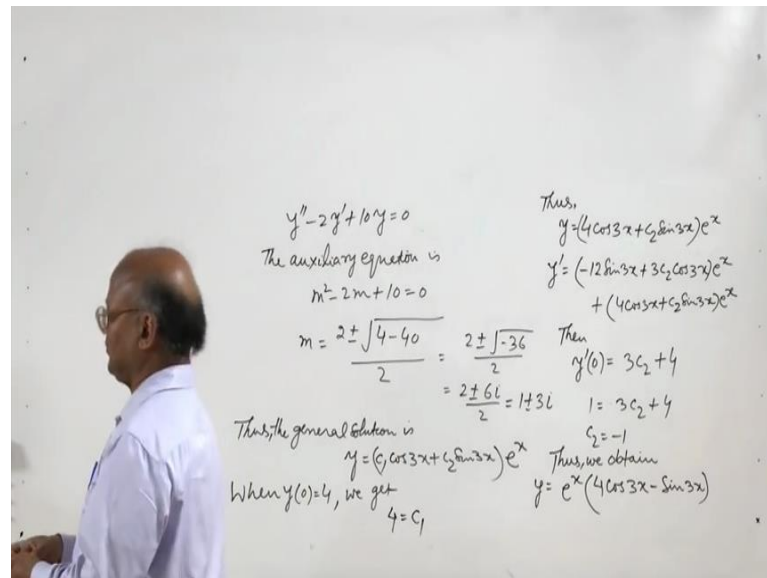 y″-2y′+10y=0
The auxiliary equation is
m²-2m+10=0
m = 2±√4-40 / 2 = 2±√-36 / 2
= 2±6i / 2 = 1±3i
Thus, the general solution is
y=(c₁cos3x+c₂Sin3x)eˣ
When y(0)=4, we get
4=c₁
Thus,
y=(4cos3x+c₂Sin3x)eˣ
y′=(-12Sin3x+3c₂cos3x)eˣ
+(4cos3x+c₂Sin3x)eˣ
Then
y′(0)= 3c₂+4
1= 3c₂+4
c₂=-1
Thus, we obtain
y= eˣ(4cos3x-Sin3x)